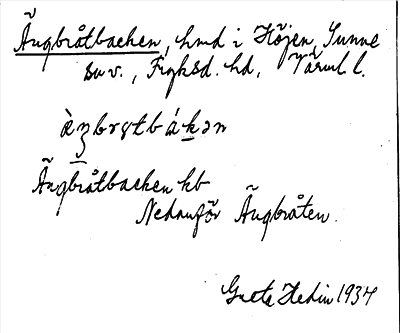 Ängbråtbacken, hmd i Höjen, Sunne
sn v., Fryksd. hd, Värml. l.
Ängbråtbacken hb
Nedanför Ängbråten.
Greta Hedin 1934